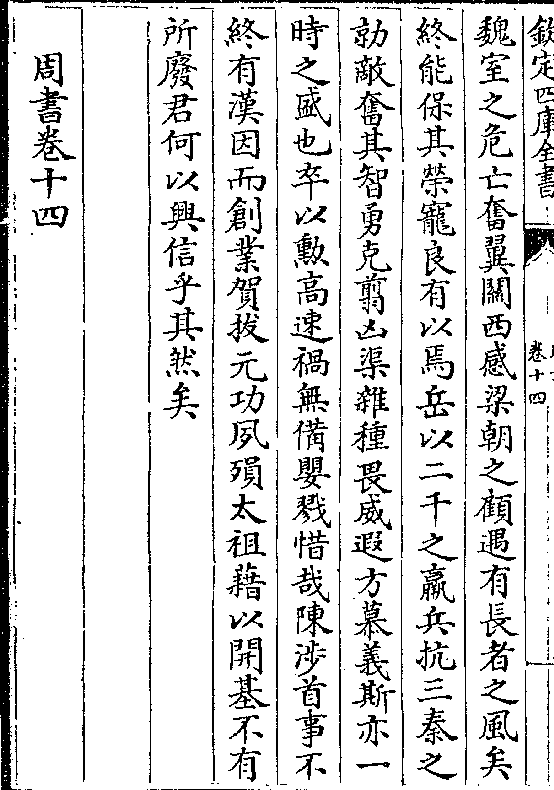 欽定四庫全書
卷十四
魏室之危亡奮翼關西感梁朝之顧遇有長者之風矣
終能保其榮寵良有以焉岳以二千之羸兵抗三秦之
勍敵奮其智勇克翦凶渠雜種畏威遐方慕義斯亦一
時之盛也卒以勳高速禍無備嬰戮惜哉陳涉首事不
終有漢因而創業賀拔元功夙殞太祖藉以開基不有
所廢君何以興信乎其然矣
周書卷十四